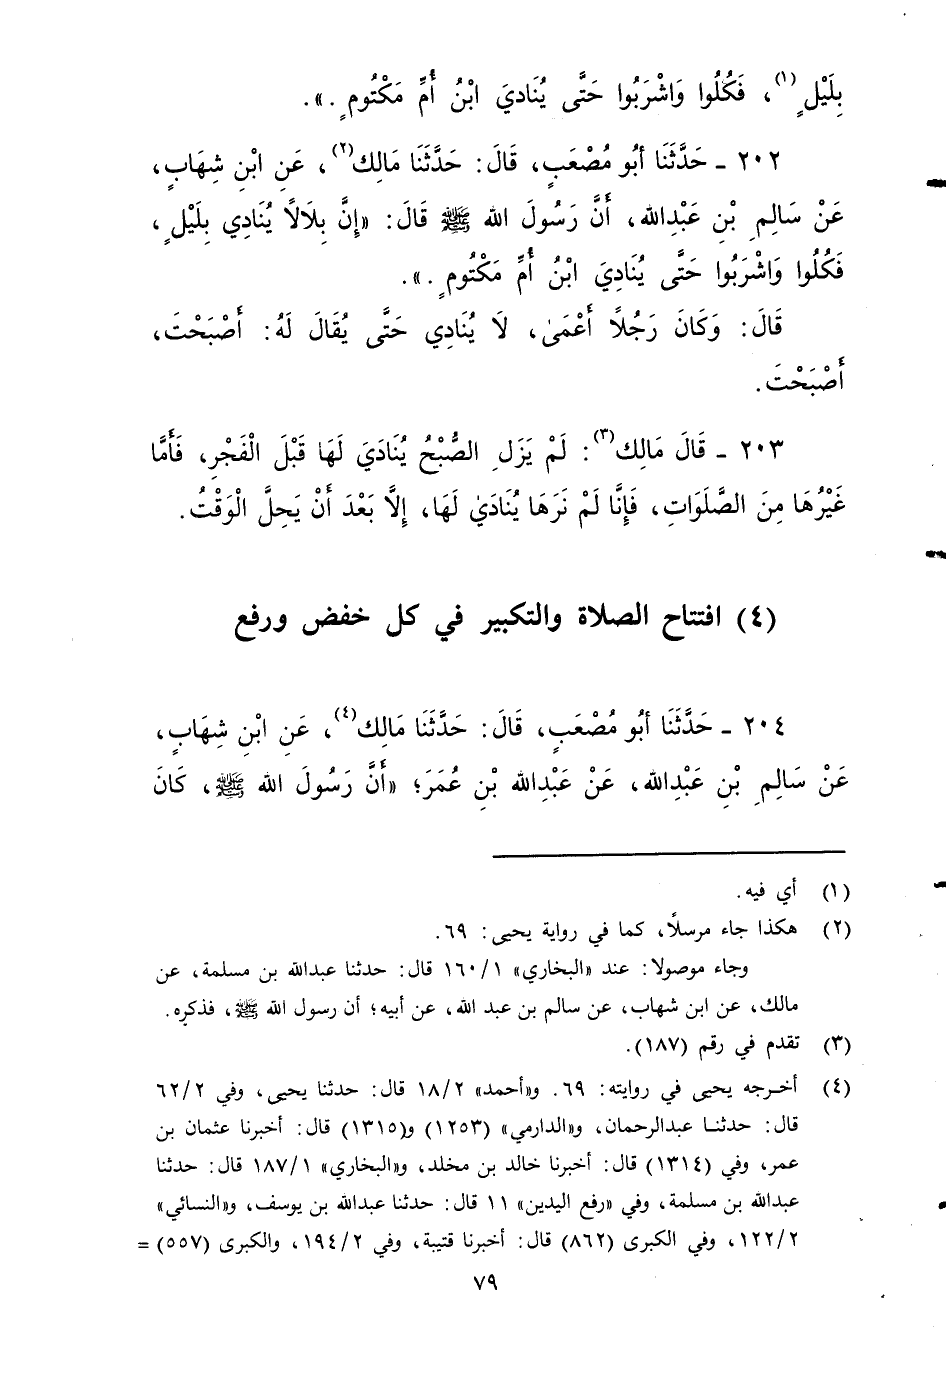 بِلَيْلٍ(١)، فَكُلُوا وَاشْرَبُوا حَتَّى يُنَادِيَ ابْنُ أُمِّ مَكْتُومٍ.».
٢٠٢ ـ حَدَّثَنَا أَبُو مُصْعَبٍ، قَالَ: حَدَّثَنَا مَالِك(٢)، عَنِ ابْنِ شِهَابٍ،
عَنْ سَالِمِ بْنِ عَبْدِالله، أَنَّ رَسُولَ الله ﷺ قَالَ: «إِنَّ بِلَالًا يُنَادِي بِلَيْلٍ،
فَكُلُوا وَاشْرَبُوا حَتَّى يُنَادِيَ ابْنُ أُمِّ مَكْتُومٍ.».
قَالَ: وَكَانَ رَجُلاً أَعْمَىٰ، لاَ يُنَادِي حَتَّى يُقَالَ لَهُ: أَصْبَحْتَ،
أَصْبَحْتَ.
٢٠٣ ـ قَالَ مَالِك(٣): لَمْ يَزَلِ الصُّبْحُ يُنَادَيَ لَهَا قَبْلَ الْفَجْرِ، فَأَمَّا
غَيْرُهَا مِنَ الصَّلَوَاتِ، فَإِنَّا لَمْ نَرَهَا يُنَادَيٰ لَهَا، إِلَّا بَعْدَ أَنْ يَحِلَّ الْوَقْتُ.
(٤) افتتاح الصلاة والتكبير في كل خفض ورفع
٢٠٤ ـ حَدَّثَنَا أَبُو مُصْعَبٍ، قَالَ: حَدَّثَنَا مَالِك(٤)، عَنِ ابْنِ شِهَابٍ،
عَنْ سَالِمِ بْنِ عَبْدِالله، عَنْ عَبْدِالله بْنِ عُمَرَ؛ «أَنَّ رَسُولَ الله ﷺ، كَانَ
(١) أي فيه.
(٢) هكذا جاء مرسلًا، كما في رواية يحيى: ٦٩.
وجاء موصولا: عند «البخاري» ١/ ١٦٠ قال: حدثنا عبدالله بن مسلمة، عن
مالك، عن ابن شهاب، عن سالم بن عبد الله، عن أبيه؛ أن رسول الله ﷺ، فذكره.
(٣) تقدم في رقم (١٨٧).
(٤) أخرجه يحيى في روايته: ٦٩. و«أحمد» ٢/ ١٨ قال: حدثنا يحيى، وفي ٢/ ٦٢
قال: حدثنا عبدالرحمان، و«الدارمي» (١٢٥٣) و(١٣١٥) قال: أخبرنا عثمان بن
عمر، وفي (١٣١٤) قال: أخبرنا خالد بن مخلد، و«البخاري» ١/ ١٨٧ قال: حدثنا
عبدالله بن مسلمة، وفي «رفع اليدين» ١١ قال: حدثنا عبدالله بن يوسف، و«النسائي»
٢/ ١٢٢، وفي الكبرى (٨٦٢) قال: أخبرنا قتيبة، وفي ٢/ ١٩٤، والكبرى (٥٥٧) =
٧٩